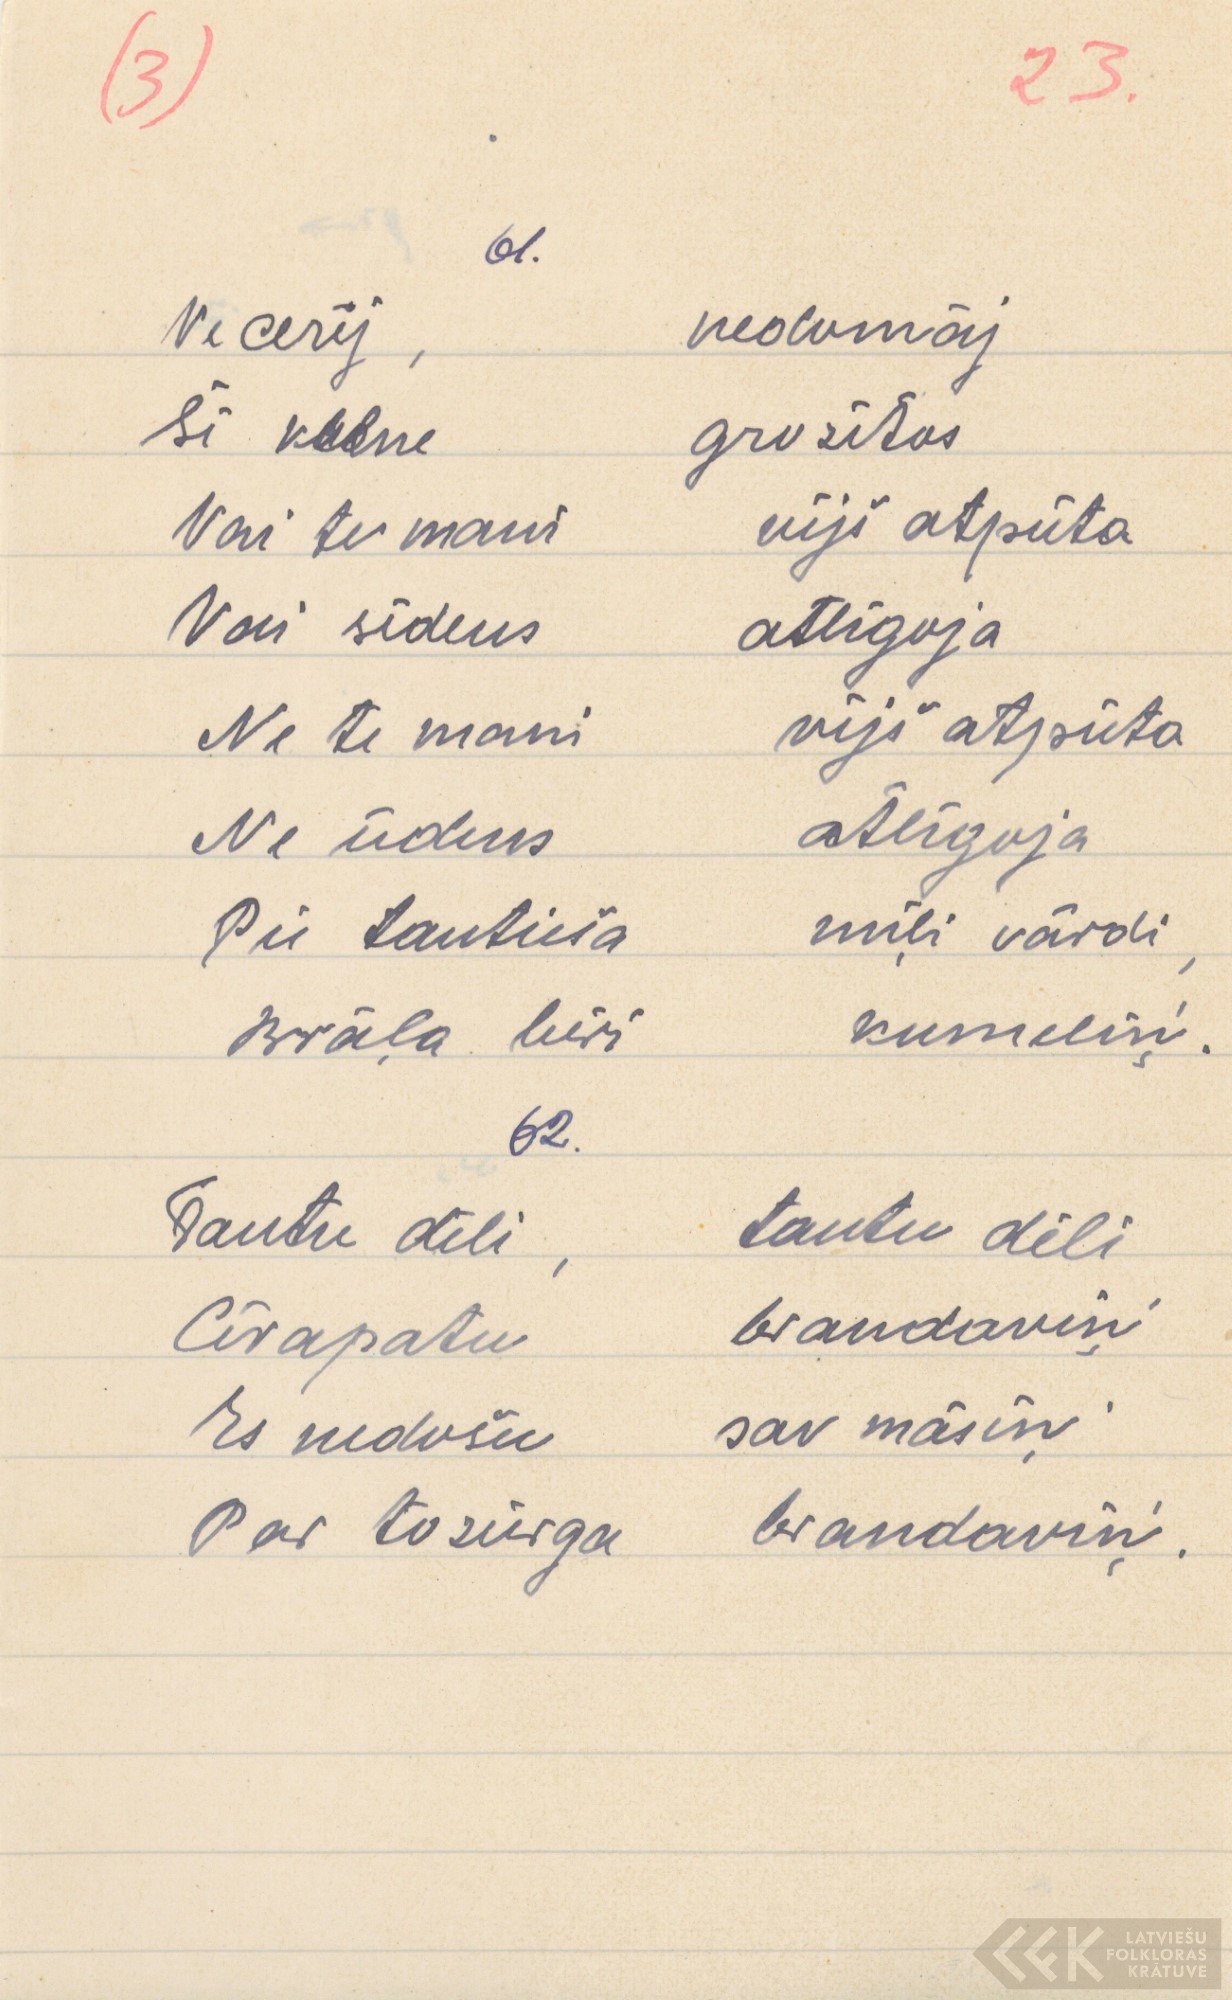 (3) 23.
61.
Ne cerij, nedomāj
Ši grozītos
Vai te mani vijš atpūta
Vai sīdens atlīgoja
Ne te mani vijš atpūta
Ne ūdens atlīgoja
Pii tautieša miļi vārdi,
Brāļa bēri kumeliņi.
62.
Tautu dēli, tautu dēli
Cirapatu brandaviņi
Es nedošu sav māsiņi
Par to zirga brandaviņi.
LATVIEŠU
FOLKLORAS
KRĀTUVE